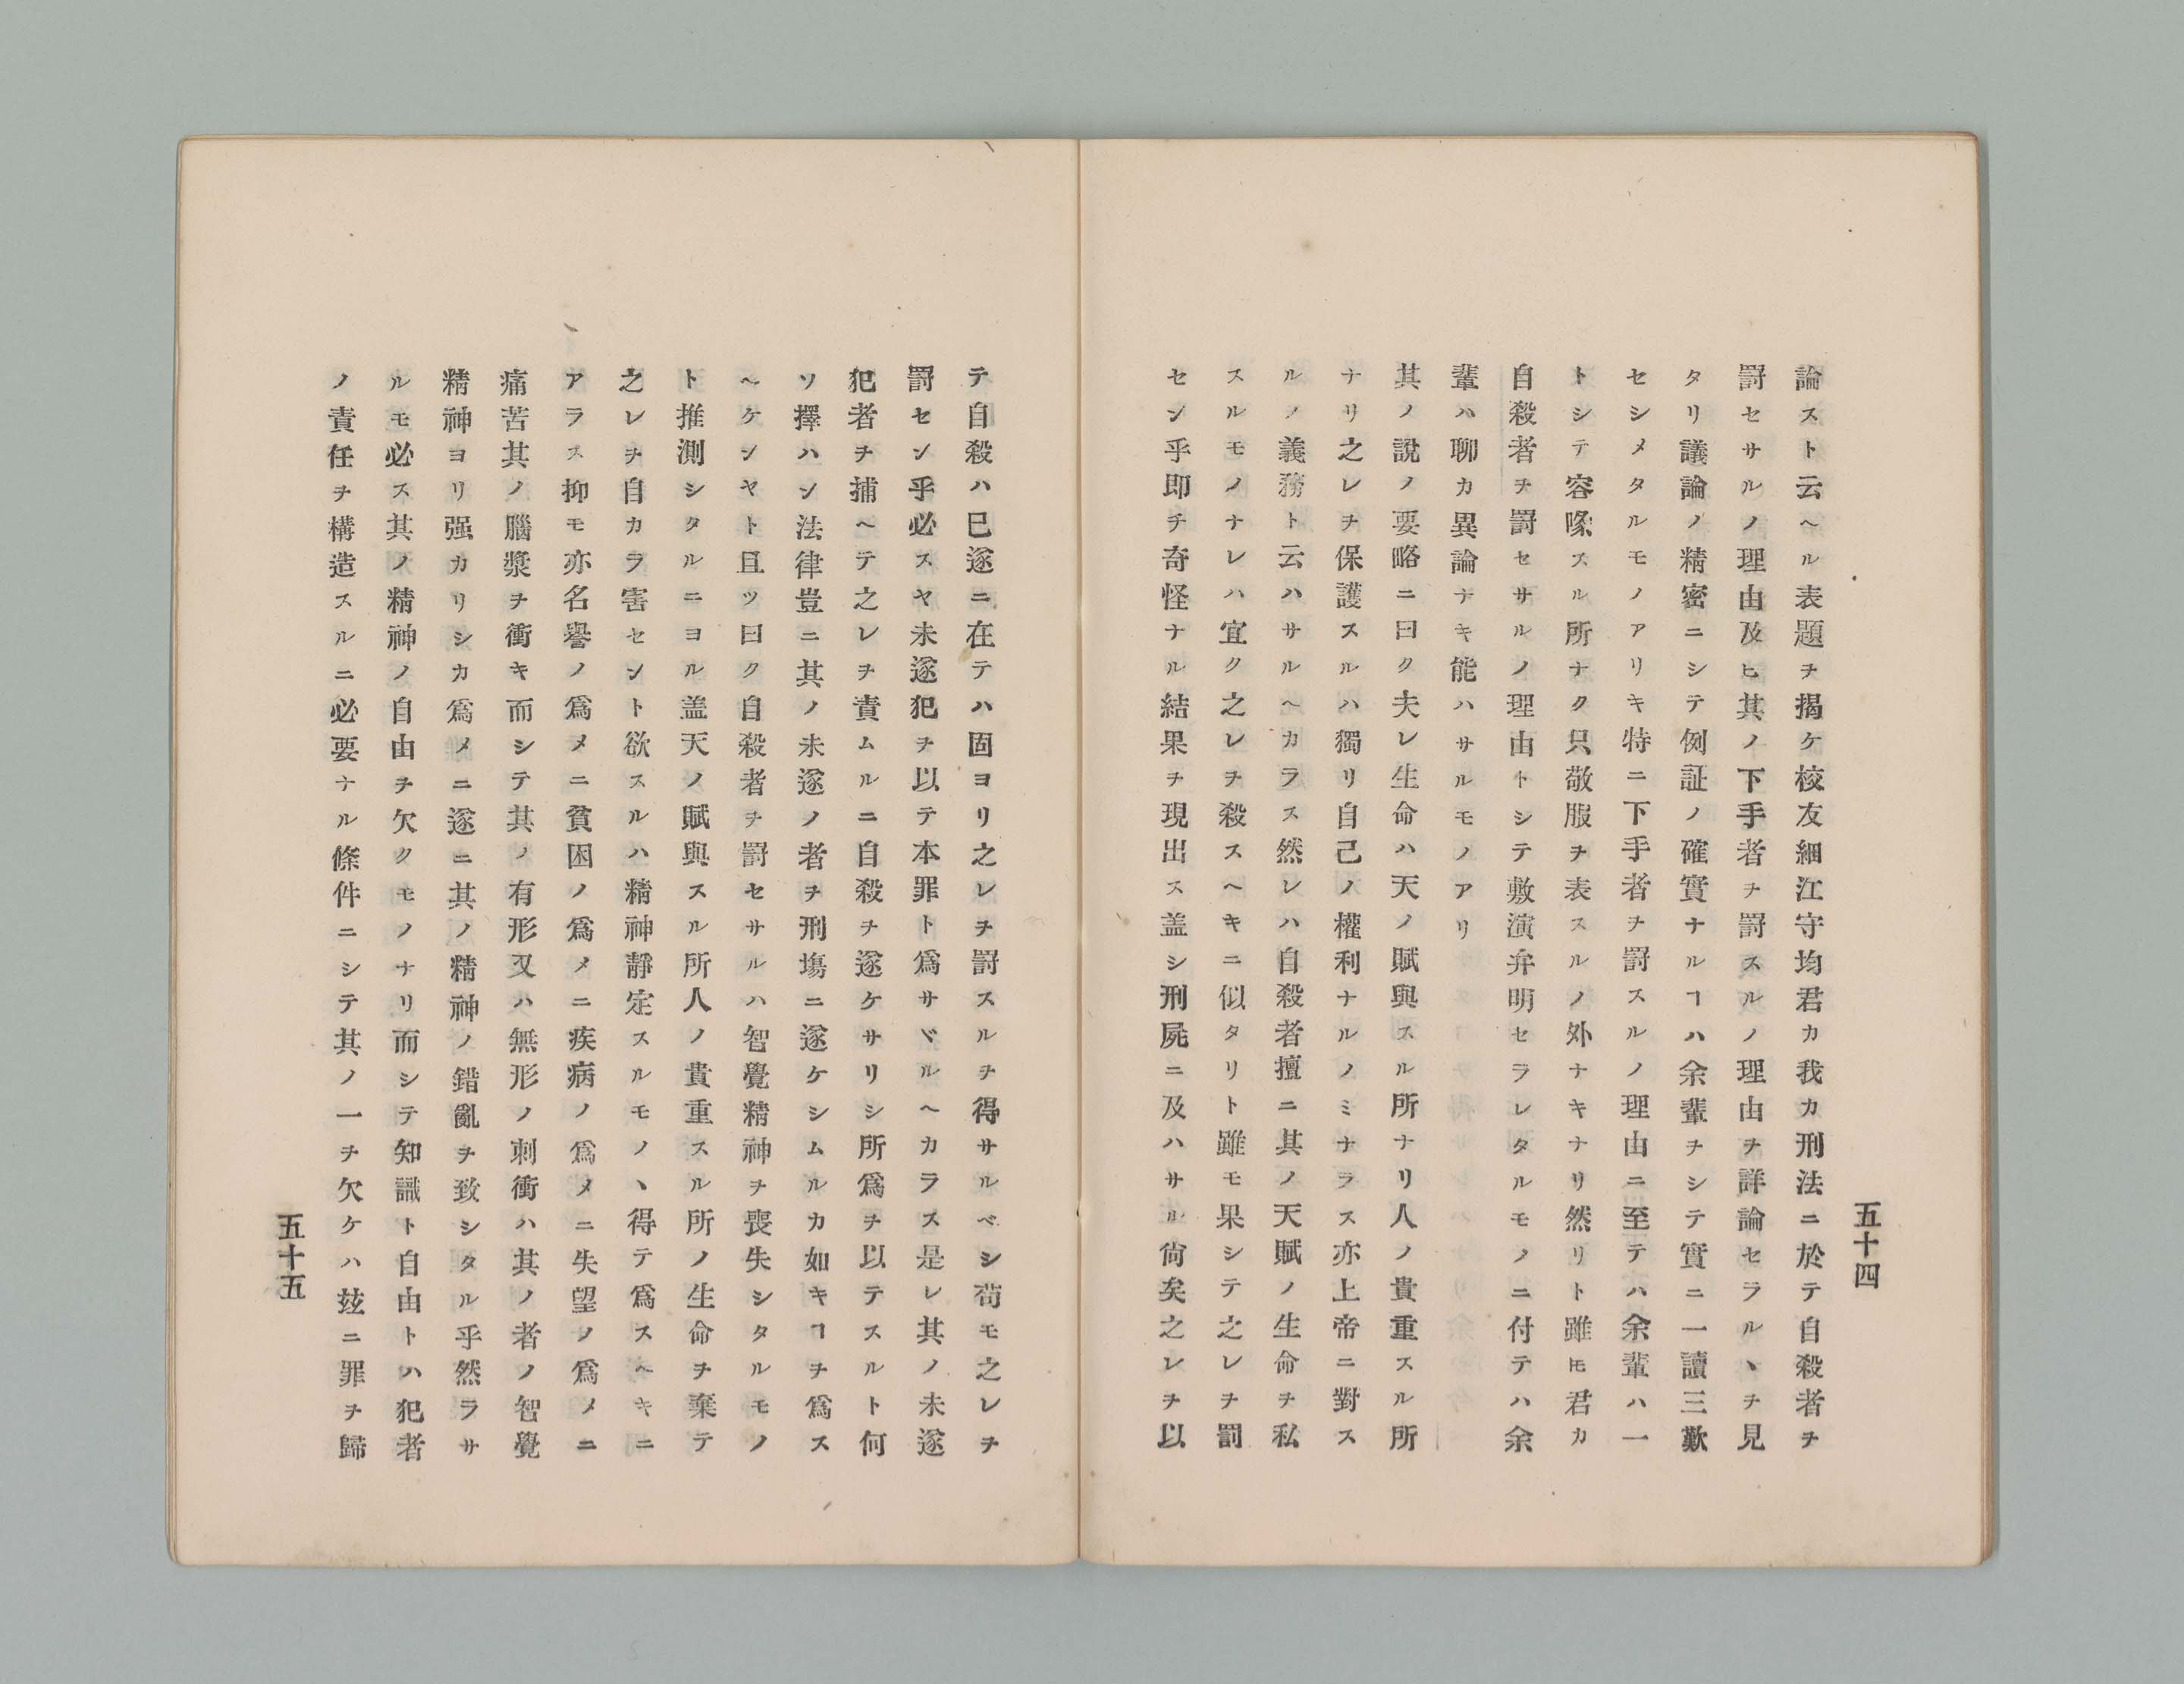 五十四
論スト云ヘル表題ヲ揭ケ校友細江守均君カ我カ刑法ニ於テ自殺者ヲ
罰セサルノ理由及ヒ其ノ下手者ヲ罰スルノ理由ヲ詳論セラルヽヲ見
タリ議論ノ精密ニシテ例証ノ確實ナルヿハ余輩ヲシテ實ニ一讀三歎
セシメタルモノアリキ特ニ下手者ヲ罰スルノ理由ニ至テハ余輩ハ一
トシテ容喙スル所ナク只敬服ヲ表スルノ外ナキナリ然リト雖𪜈君カ
自殺者ヲ罰セサルノ理由トシテ敷演弁明セラレタルモノニ付テハ余
輩ハ聊カ異論ナキ能ハサルモノアリ
其ノ說ノ要略ニ曰ク夫レ生命ハ天ノ賦與スル所ナリ人ノ貴重スル所
ナリ之レヲ保護スルハ獨リ自己ノ權利ナルノミナラス亦上帝ニ對ス
ルノ義務ト云ハサルヘカラス然レハ自殺者擅ニ其ノ天賦ノ生命ヲ私
スルモノナレハ宜ク之レヲ殺スヘキニ似タリト雖モ果シテ之レヲ罰
セン乎即チ奇怪ナル結果ヲ現出ス盖シ刑屍ニ及ハサル尙矣之レヲ以
テ自殺ハ已遂ニ在テハ固ヨリ之レヲ罰スルヲ得サルベシ苟モ之レヲ
罰セン乎必スヤ未遂犯ヲ以テ本罪ト爲サヾルヘカラス是レ其ノ未遂
犯者ヲ捕ヘテ之レヲ責ムルニ自殺ヲ遂ケサリシ所爲ヲ以テスルト何
ソ擇ハン法律豈ニ其ノ未遂ノ者ヲ刑塲ニ遂ケシムルカ如キヿヲ爲ス
ヘケンヤト且ツ曰ク自殺者ヲ罰セサルハ智覺精神ヲ喪失シタルモノ
ト推測シタルニヨル盖天ノ賦與スル所人ノ貴重スル所ノ生命ヲ棄テ
之レヲ自カラ害セント欲スルハ精神靜定スルモノヽ得テ爲スヘキニ
アラス抑モ亦名譽ノ爲メニ貧困ノ爲メニ疾病ノ爲メニ失望ノ爲メニ
痛苦其ノ腦漿ヲ衝キ而シテ其ノ有形又ハ無形ノ刺衝ハ其ノ者ノ智覺
精神ヨリ强カリシカ爲メニ遂ニ其ノ精神ノ錯亂ヲ致シタル乎然ラサ
ルモ必ス其ノ精神ノ自由ヲ欠クモノナリ而シテ知識ト自由トハ犯者
ノ責任ヲ構造スルニ必要ナル條件ニシテ其ノ一ヲ欠ケハ玆ニ罪ヲ歸
五十五